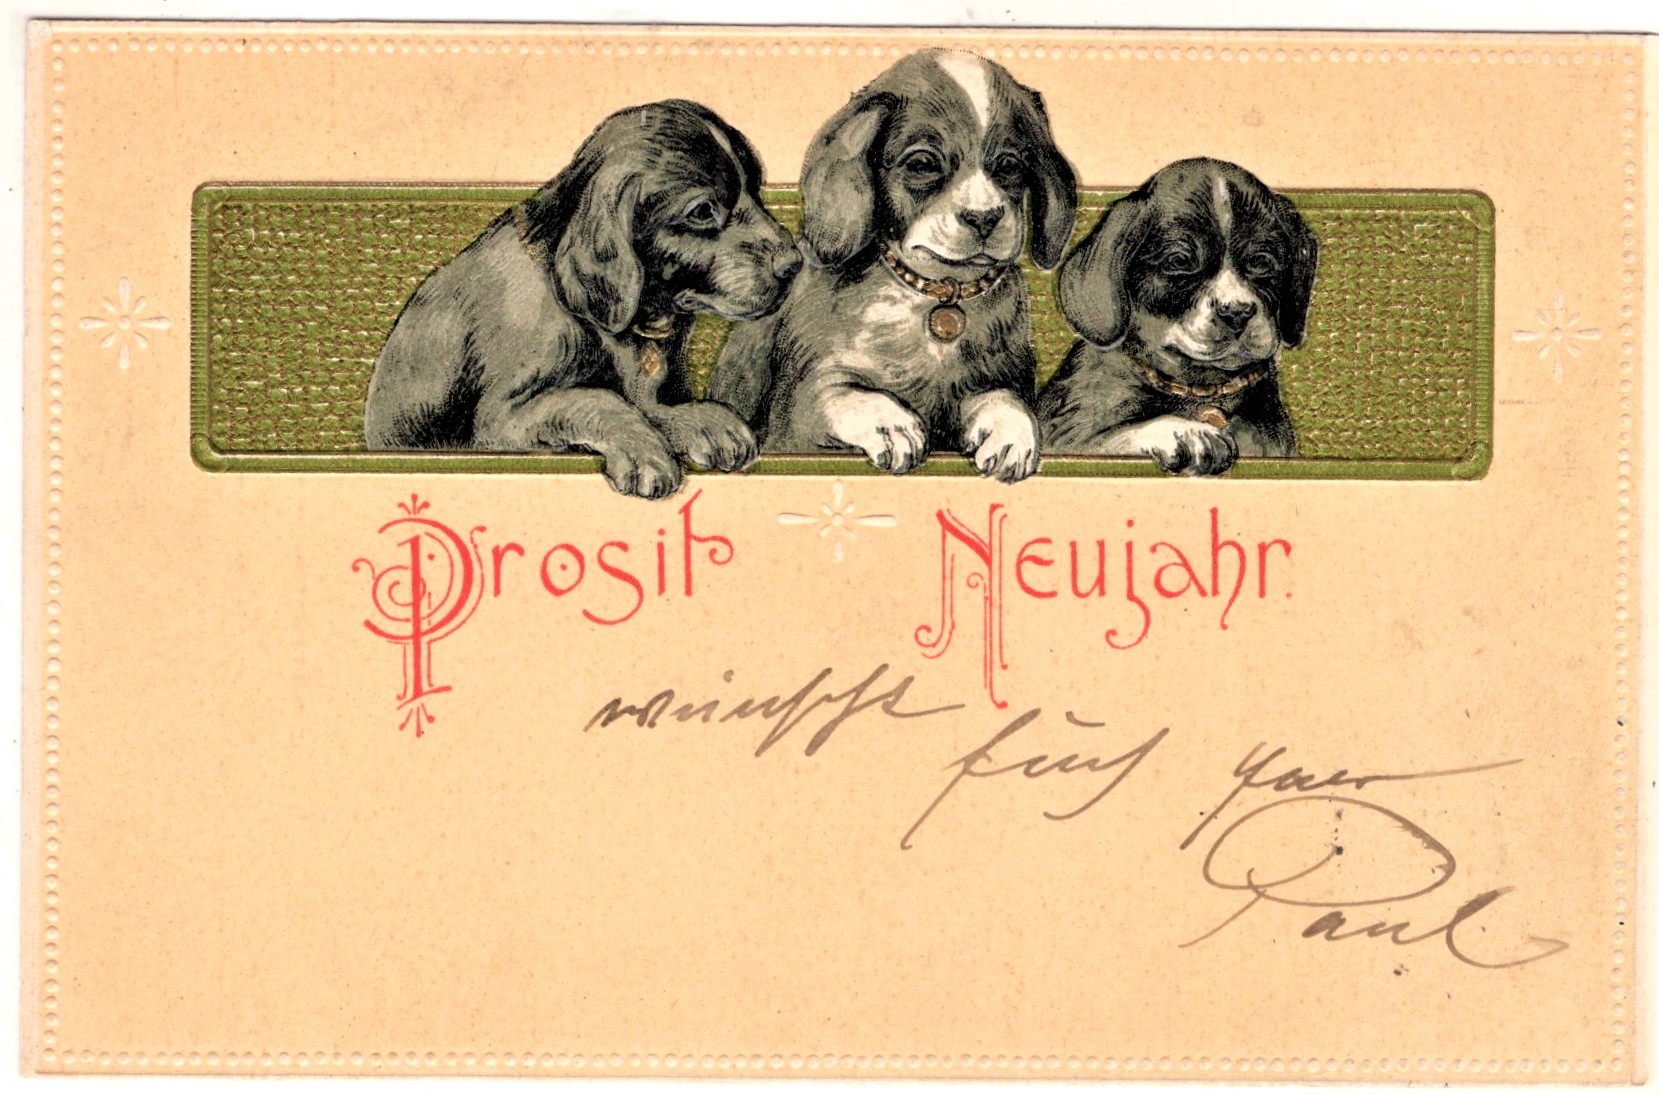 Prosit Neujahr.
wünscht
Euch Euer
Paul.